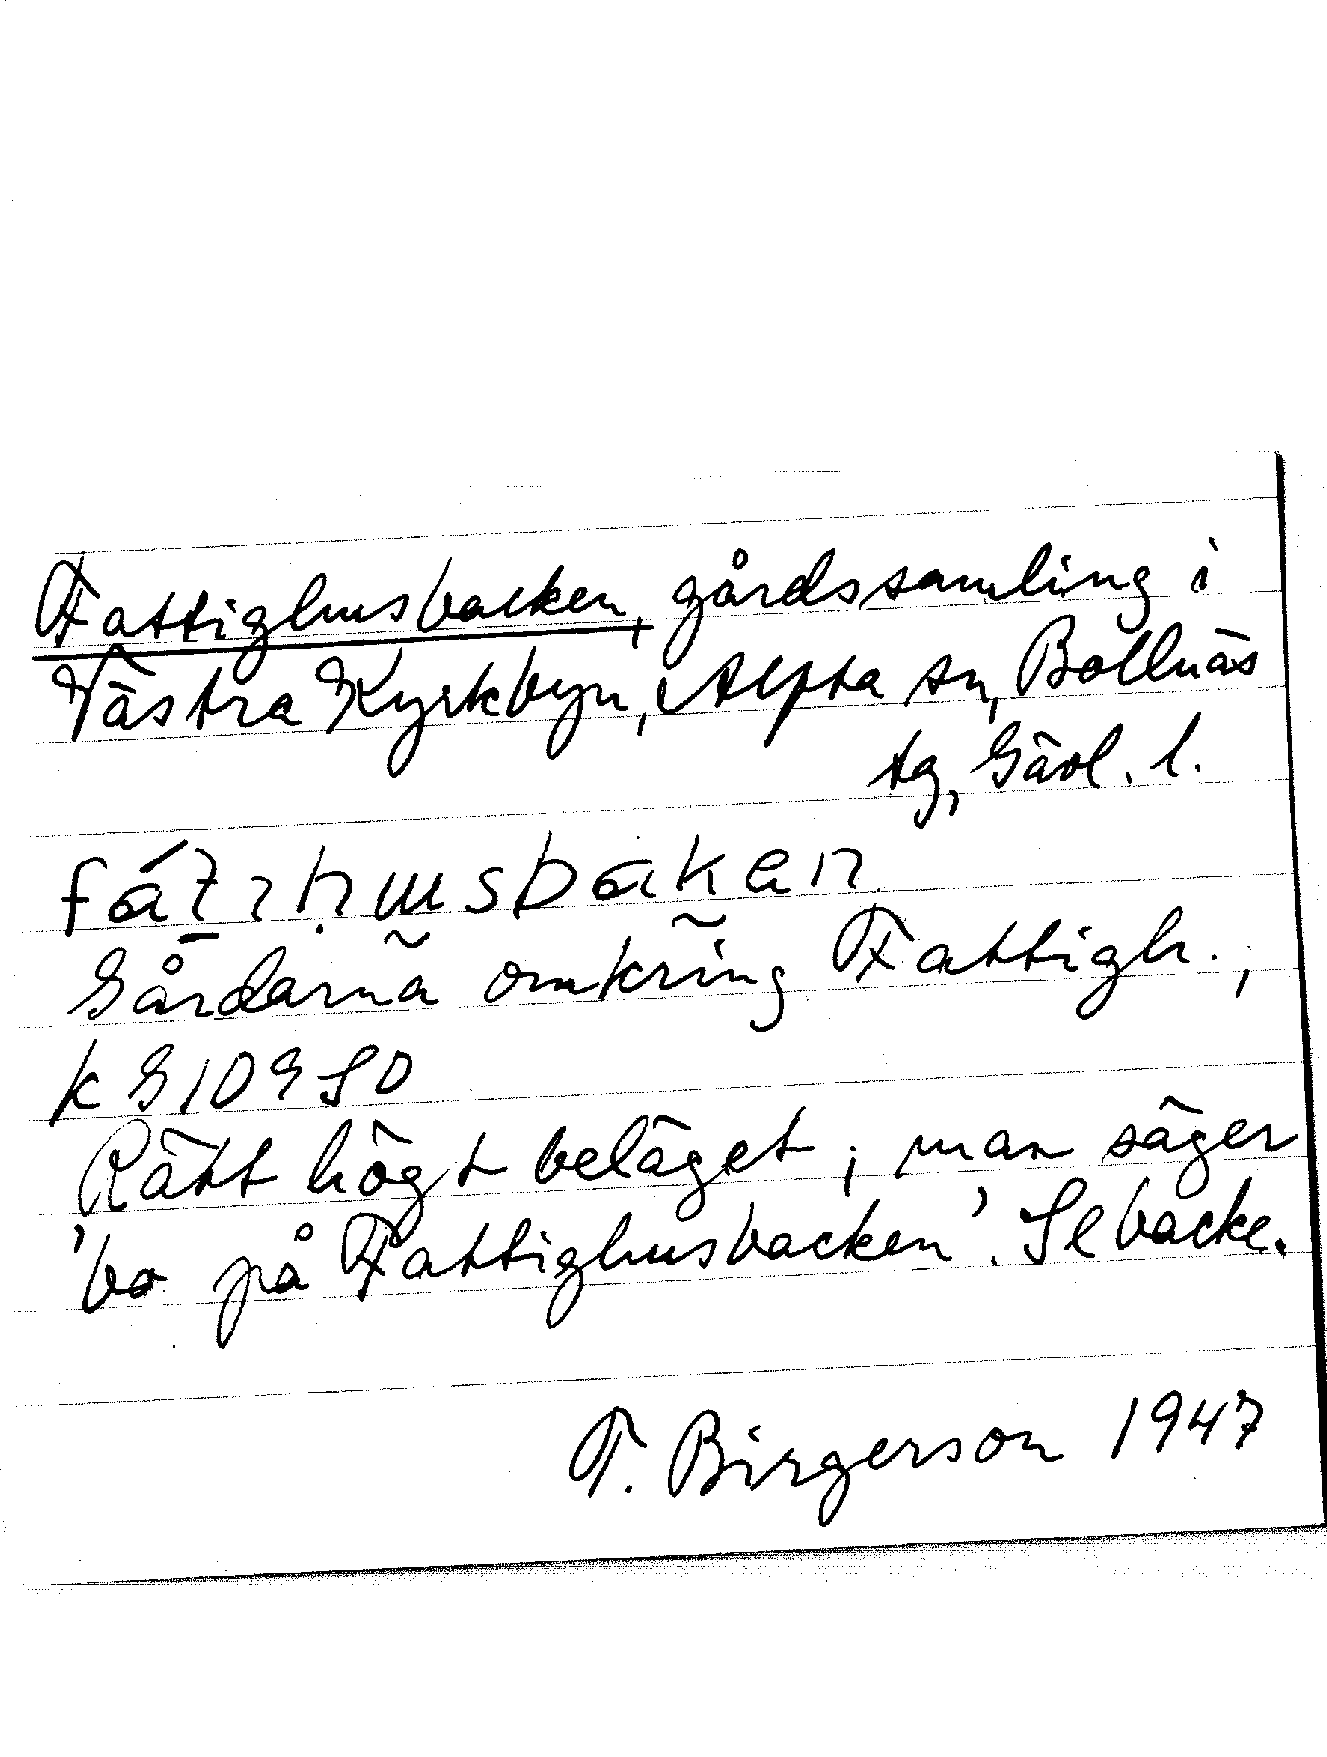 Fattighusbacken, gårdssamling i
Västra Kyrkbyn, Alfta sn, Bollnäs
tg, Gävl. l.
Gårdarna omkring Fattigh.,
Rätt högt beläget; man säger
'bo på Fattighusbacken'. Se backe.
T. Birgerson 1947